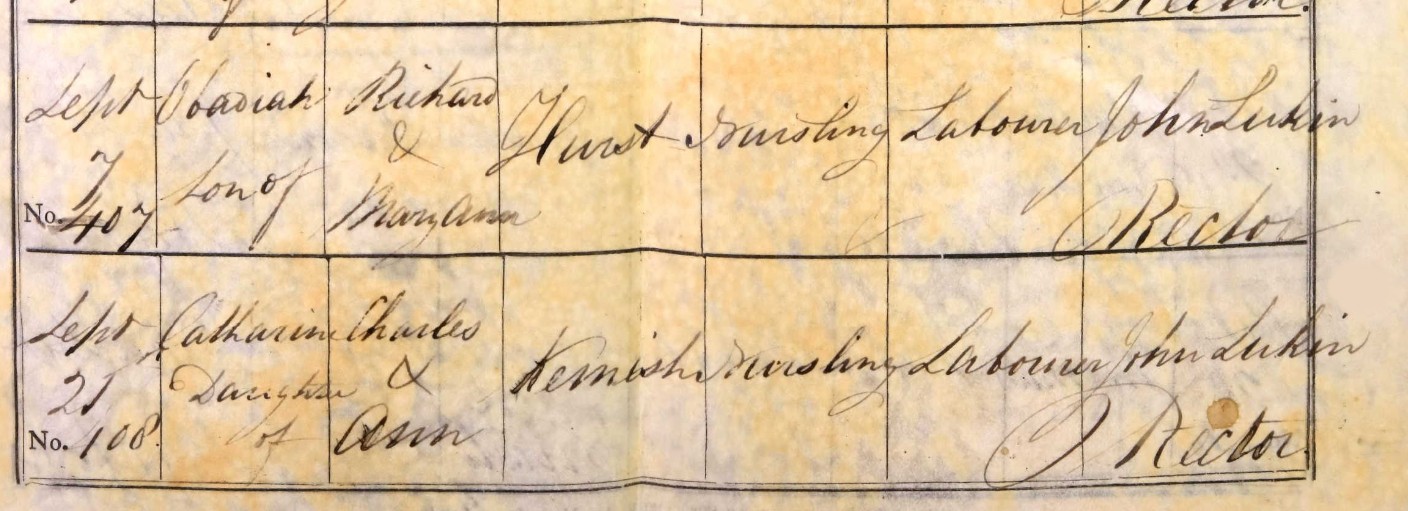 Rector.
Sept Obadiah Richard Hurst Nursling Labourer John Lukin
7 son of & Mary Ann Rector
No. 407
Sept Catharine Charles Kemish Nursling Labourer John Lukin
21 Daughter & Rector
No. 408. of Ann